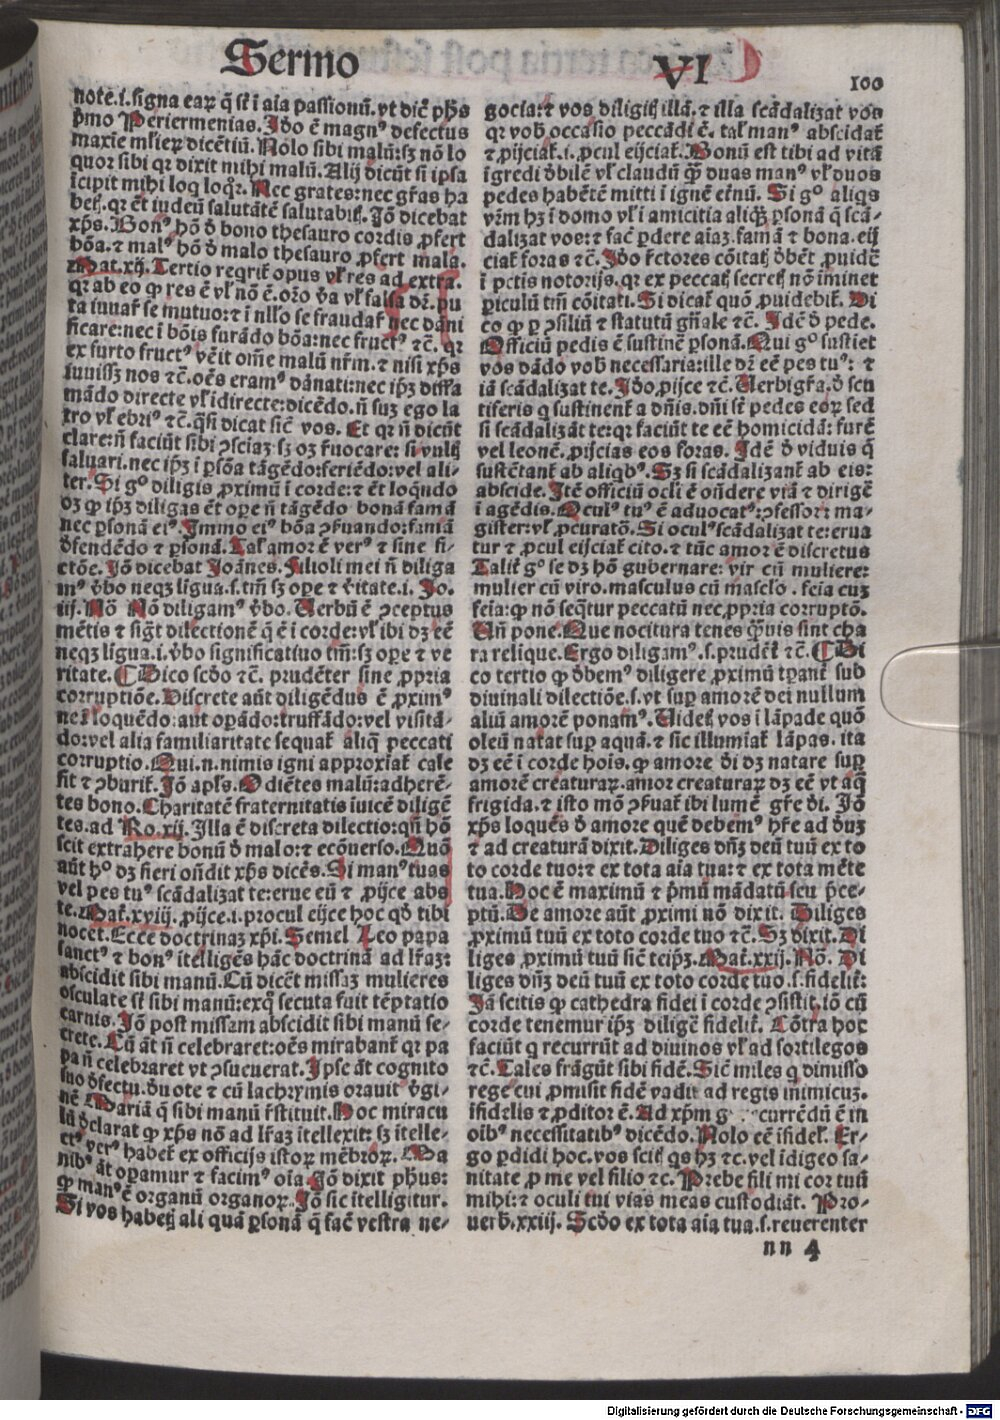 Sermo VI 100
note.i.signa earꝝ q̃ st̃ ĩ aĩa passionũ.vt dic̃ ph̃s
p̃mo Periermenias.Jdo ẽ magnꝰ defectus
maxĩe ml̃ieꝝ dicẽtiũ.Nolo sibi malũ:sꝫ nõ lo
quor sibi qꝛ dixit mihi malũ.Alij dicũt si ip̃a
ĩcipit mihi loq loq̃r.Nec grates:nec gr̃as ha
betꝭ.qꝛ ẽt iudeũ salutãtẽ salutabitꝭ.Jõ dicebat
xp̃s.Bonꝰ hõ đ bono thesauro cordis ꝓfert
bõa.⁊ malꝰ hõ đ malo thesauro ꝓfert mala.
Mat.xij.Tertio reqrit̃ opus vl̃ res ad extra.
qꝛ ab eo ꝙ res ẽ vl̃ nõ ẽ.oꝛõ v̓a vl̃ falsa dꝛ̃.pu
ta iuuat̃ se mutuo:⁊ ĩ nll̃o se fraudat̃ nec dãni
ficare:nec ĩ bõis furãdo bõa:nec fructꝰ ⁊c̃.qꝛ
ex furto fructꝰ vẽit om̃e malũ nr̃m.⁊ nisi xp̃s
iuuissꝫ nos ⁊c̃.oẽs eramꝰ dãnati:nec ip̃ꝫ diffa
mãdo directe vl̃ idirecte:dicẽdo.ñ suꝫ ego la
tro vl̃ ebriꝰ ⁊c̃.q̃si dicat sic̃ vos.Et qꝛ ñ dicũt
clare:ñ faciũt sibi ꝯsciaꝫ sꝫ oꝫ r̃uocare:si vultꝭ
saluari.nec ip̃ꝫ ĩ ꝑsõa tãgẽdo:feriẽdo:vel ali-
ter.Si gͦ diligis ꝓximũ ĩ corde:⁊ ẽt loq̃ndo
oꝫ ꝙ ip̃ꝫ diligas ẽt oꝑe ñ tãgẽdo bonã famã
nec ꝑsonã eiꝰ.Jmmo eiꝰ bõa ꝯseruando:famã
đfendẽdo ⁊ ꝑsonã.Tal̃ amor ẽ verꝰ ⁊ sine fi-
ctõe.Jõ dicebat Joãnes.Filioli mei ñ diliga
mꝰ v̓bo neqꝫ ligua.s.tm̃ sꝫ oꝑe ⁊ v̓itate.i.Jo.
iij.Nõ Nõ diligamꝰ v̓bo.Uerbũ ẽ ꝯceptus
mẽtis ⁊ sigt̃ dilectionẽ q̃ ẽ ĩ corde:vl̃ ibi dꝫ eẽ
neqꝫ ligua.i.v̓bo significatiuo tm̃:sꝫ oꝑe ⁊ ve
ritate.¶Dico scđo ⁊c̃.prudẽter sine ꝓpria
corruptiõe.Discrete aũt diligẽdus ẽ ꝓximꝰ
ne ĩ loquẽdo:aut oꝑãdo:truffãdo:vel visitã-
do:vel alia familiaritate sequat̃ aliq̃ peccati
corruptio.Qui.n.nimis igni approxĩat cale
fit ⁊ ꝯburit̃.Jõ apl̃s.Odiẽtes malũ:adherẽ-
tes bono.Charitatẽ fraternitatis ĩuicẽ diligẽ
tes.ad Ro.xij.Jlla ẽ discreta dilectio:qñ hõ
scit extrahere bonũ đ malo:⁊ ecõuerso.Quõ
aũt hͦ dꝫ fieri oñdit xp̃s dicẽs.Si manꝰ tuas
vel pes tuꝰ scãdalizat te:erue eũ ⁊ ꝓijce abs
te.Mat̃.xviij.ꝓijce.i.procul eijce hoc qđ tibi
nocet.Ecce doctrinaꝫ xp̃i.Semel Leo papa
sanctꝰ ⁊ bonꝰ ĩtelligẽs hãc doctrinã ad lr̃aꝫ:
abscidit sibi manũ.Cũ dicẽt missaꝫ mulieres
osculate st̃ sibi manũ:exq̃ secuta fuit tẽptatio
carnis.Jõ post missam abscidit sibi manũ se-
crete.Cũ ãt ñ celebraret:oẽs mirabant̃ qꝛ pa
pa ñ celebraret vt ꝯsueuerat.Jpse ãt cognito
suo đfectu.đuote ⁊ cũ lachrymis orauit v̓gi-
nẽ Mariã q̃ sibi manũ r̃stituit.Hoc miracu
lũ đclarat ꝙ xp̃s nõ ad lr̃aꝫ ĩtellexit:sꝫ ĩtelle-
ctꝰ verꝰ habet̃ ex officijs istoꝝ mẽbroꝝ.Ma
nibꝰ ãt oꝑamur ⁊ facimꝰ oĩa.Jõ dixit phus:
ꝙ manꝰ ẽ organũ organoꝝ.Jõ sic ĩtelligitur.
Si vos habetꝭ ali quã ꝑsonã q̃ fac̃ vestra ne-
gocia:⁊ vos diligitꝭ illã.⁊ illa scãdalizat vos
qꝛ vob̓ occasio peccãdi ẽ.tal̃ manꝰ abscidat̃
⁊ ꝓijciat̃.i.ꝓcul eijciat̃.Bonũ est tibi ad vitã
ĩgredi đbilẽ vl̃ claudũ q̃ꝫ duas manꝰ vl̃ duos
pedes habẽtẽ mitti ĩ ignẽ et̃nũ.Si gͦ aliqs
vr̃m hꝫ ĩ domo vl̃ ĩ amicitia aliq̃ꝫ ꝑsonã q̃ scã-
dalizat vos:⁊ fac̃ ꝑdere aĩaꝫ.famã ⁊ bona.eij
ciat̃ foras ⁊c̃.Jđo r̃ctores cõitatꝭ đbẽt ꝓuidẽ
ĩ pctĩs notorijs.qꝛ ex peccatꝭ secretꝭ nõ iminet
ꝑiculũ tm̃ cõitati.Si dicat̃ quõ ꝓuidebit̃.Di
co ꝙ ꝑ ꝯsiliũ ⁊ statutũ gñale ⁊c̃.Jdẽ đ pede.
Officiũ pedis ẽ sustinẽ ꝑsonã.Qui gͦ sustiet
vos dãdo vob̓ necessaria:ille dꝛ̃ eẽ pes tuꝰ:⁊
iã scãdalizat te.Jđo ꝓijce ⁊c̃.Uerbigr̃a.đ scu
tiferis q sustinent̃ a dñis.dñi st̃ pedes eoꝝ sed
si scãdalizãt te:qꝛ faciũt te eẽ homicidã:furẽ
vel leonẽ.ꝓijcias eos foras.Jdẽ đ viduis q̃
sustẽtant̃ ab aliqbꝰ.Sꝫ si scãdalizant̃ ab eis:
abscide.Jtẽ officiũ ocli ẽ oñdere viã ⁊ dirigẽ
ĩ agẽdis.Oculꝰ tuꝰ ẽ aduocatꝰ:ꝯfessor:ma-
gister:vl̃ ꝓcuratõ.Si oculꝰ scãdalizat te:erua
tur ⁊ ꝓcul eijciat̃ cito.⁊ tũc amor ẽ discretus
Talit̃ gͦ se dꝫ hõ gubernare:vir cũ muliere:
mulier cũ viro.masculus cũ masclo.feĩa cuꝫ
feĩa:ꝙ nõ seq̃tur peccatũ nec ꝓpria corruptõ.
Uñ pone.Que nocitura tenes q̃ꝫuis sint cha
ra relique.Ergo diligamꝰ.s.prudẽt̃ ⁊c̃.¶Di
co tertio ꝙ đbemꝰ diligere ꝓximũ tꝑant̃ sub
diuinali dilectiõe.s.vt suꝑ amorẽ dei nullum
aliũ amorẽ ponamꝰ.Uidetꝭ vos ĩ lãpade quõ
oleũ natat suꝑ aquã.⁊ sic illumĩat̃ lãpas.ita
dꝫ eẽ ĩ corde hoĩs.ꝙ amore đi dꝫ natare suꝑ
amorẽ creaturaꝝ.amor creaturaꝝ dꝫ eẽ vt aq̃
frigida.⁊ isto mõ ꝯseruat̃ ibi lumẽ gr̃e đi.Jõ
xp̃s loquẽs đ amore quẽ debemꝰ hr̃e ad đuꝫ
⁊ ad creaturã dixit.Diliges dñꝫ deũ tuũ ex to
to corde tuo:⁊ ex tota aĩa tua:⁊ ex tota mẽte
tua.Hoc ẽ maximũ ⁊ p̃mũ mãdatũ seu p̃ce-
ptũ.De amore aũt ꝓximi nõ dixit.Diliges
ꝓximũ tuũ ex toto corde tuo ⁊c̃.Sꝫ dixit.Di
liges ꝓximũ tuũ sic̃ teip̃ꝫ.Mat̃.xxij.Nõ.Di
liges dñꝫ deũ tuũ ex toto corde tuo.s.fidelit̃:
Jã scitis ꝙ cathedra fidei ĩ corde ꝯsistit.iõ cũ
corde tenemur ip̃ꝫ diligẽ fidelit̃.Cõtra hoc
faciũt q recurrũt ad diuinos vl̃ ad sortilegos
⁊c̃.Tales frãgũt sibi fidẽ.Sic̃ miles q dimisso
rege cui ꝓmisit fidẽ vadit ad regis inimicuꝫ.
ĩfidelis ⁊ ꝓditor ẽ.Ad xp̃m g currẽdũ ẽ in
oĩbꝰ necessitatibꝰ dicẽdo.Nolo eẽ ĩfidel̃.Er-
go ꝑdidi hoc.vos scitꝭ qs hꝫ ⁊c.vel ĩdigeo sa-
nitate ꝓ me vel filio ⁊c.Prebe fili mi cor tuũ
mihi:⁊ oculi tui vias meas custodiãt.Pro-
uerb̓.xxiij.Scđo ex tota aĩa tua.s.reuerenter
nn 4
Digitalisierung gefördert durch die Deutsche Forschungsgemeinschaft - DFG